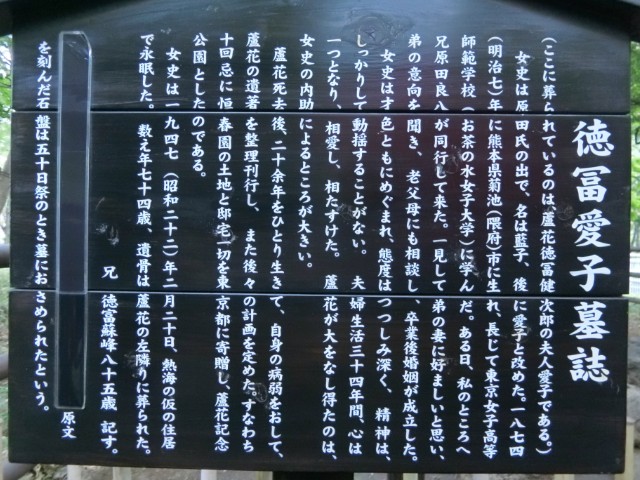 徳冨愛子墓誌
(ここに葬られているのは、蘆花徳冨健次郎の夫人愛子である。)
女史は原田氏の出で、名は藍子、後に愛子と改めた。一八七四
(明治七)年に熊本県菊池(隈府)市に生れ、長じて東京女子高等
師範学校(お茶の水女子大学)に学んだ。ある日、私のところへ
兄原田良八が同行して来た。一見して弟の妻に好ましいと思い、
弟の意向を聞き、老父母にも相談し、卒業後婚姻が成立した。
女史は才色ともにめぐまれ、態度はつつしみ深く、精神は、
しっかりして動揺することがない。夫婦生活三十四年間、心は
一つとなり、相愛し、相たすけた。蘆花が大をなし得たのは、
女史の内助によるところが大きい。
蘆花死去後、二十余年をひとり生きて、自身の病弱をおして、
蘆花の遺著を整理刊行し、また後々の計画を定めた。すなわち
十回忌に恒春園の土地と邸宅一切を東京都に寄贈し、蘆花記念
公園としたのである。
女史は一九四七(昭和二十二)年二月二十日、熱海の仮の住居
で永眠した。数え年七十四歳、遺骨は蘆花の左隣りに葬られた。
兄 徳富蘇峰八十五歳 記す。
原文
を刻んだ石盤は五十日祭のとき墓におさめられたという。